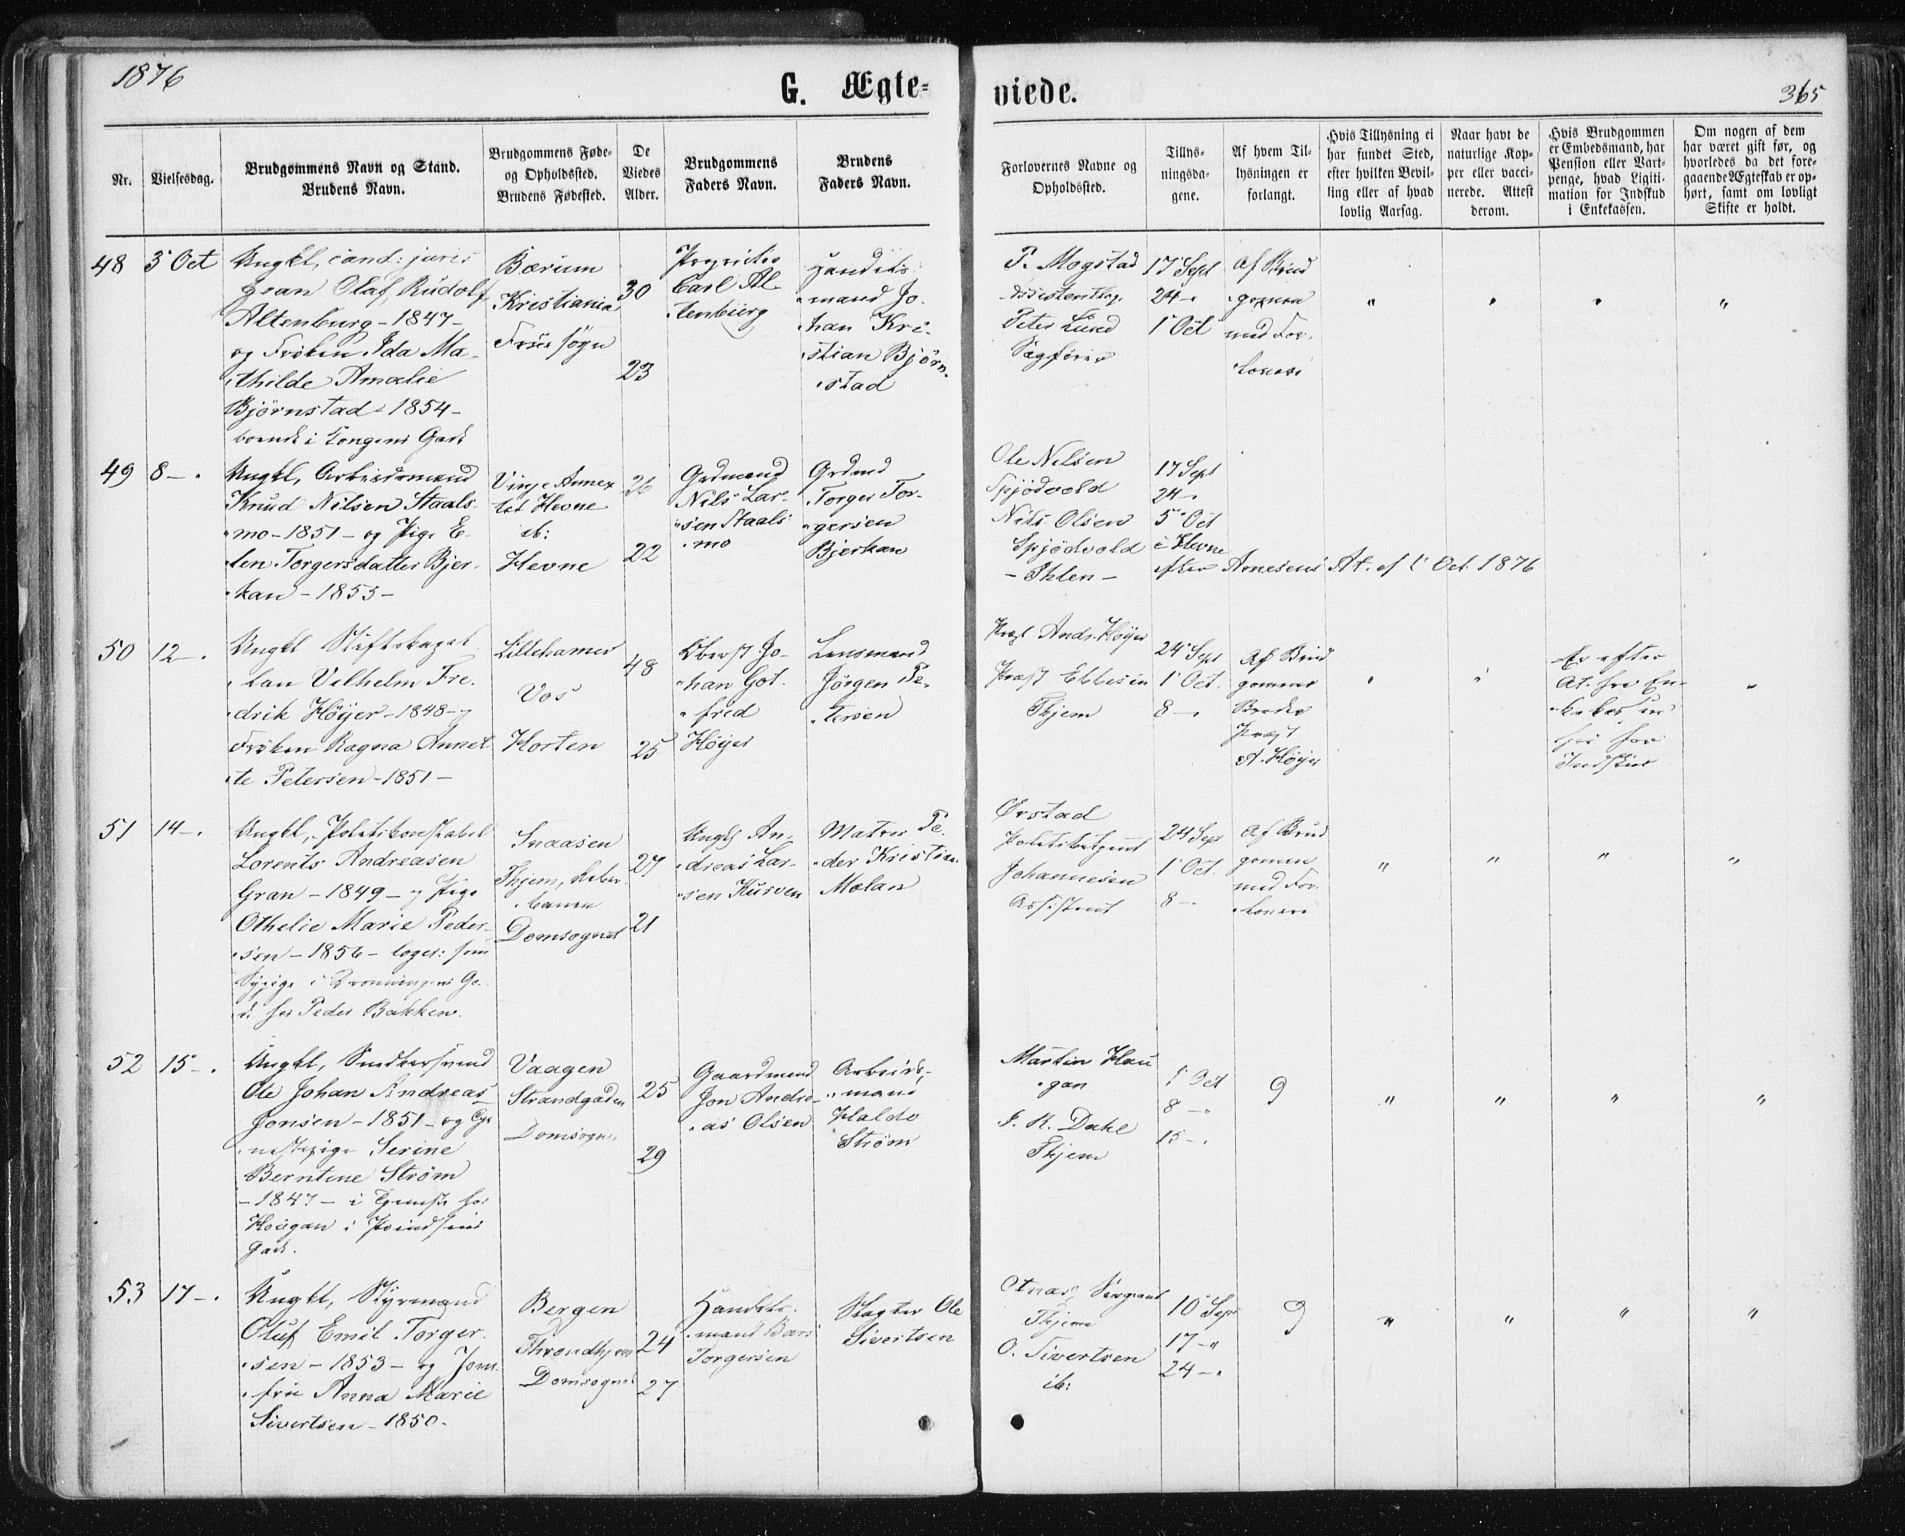 1876
G. Ægte-
viede.
365
Nr.
Vielsesdag.
Brudgommens Navn og Stand.
Brudens Navn.
Brudgommens Føde-
og Opholdssted.
Brudens Fødested.
De
Viedes
Alder.
Brudgommens
Faders Navn.
Brudens
Faders Navn.
Forlovernes Navne og
Opholdssted.
Tillys-
ningsda-
gene.
Af hvem Til-
lysningen er
forlangt.
Hvis Tillysning ei
har fundet Sted,
efter hvilken Bevil-
ling eller af hvad
lovlig Aarsag.
Naar havt de
naturlige Kop-
per eller vacci-
nerede. Attest
derom.
Hvis Brudgommen
er Embedsmand, har
Pension eller Vart-
penge, hvad Ligiti-
mation for Indskud
i Enkekassen.
Om nogen af dem
har været gift før, og
hvorledes da det fore-
gaaende Ægteskab er op-
hørt, samt om lovligt
Skifte er holdt.
48
5 Oct
Ungkl, cand: juris
Olaf Rudolf
Altenburg - 1847 -
og Frøken Ida Ma-
thilde Amalie
Bjørnstad - 1854 -
boende i Kongens Gade
Bærum
Kristiania
Frue sogn
30
23
Carl Al-
tenburg
Handels-
mand Jo-
han Kri-
stian Bjørn-
stad
P. Mogstad
Peter Lund
Sagfører
17 Sept
24 -
1 Oct
Af Brud
gommen
med For-
lovere
"
"
"
"
49
8 - .
Ungkl, Arbeidsmand
Knud Nilsen Staals-
mo - 1851 - og Pige E-
len Torgersdatter Bjer-
kan - 1855 -
Vinje Annex
til Hevne
ib:
Hevne
26
22
Grdmand
Nils Lar-
sen Staals
mo
Grdmd
Torger Tor-
gersen
Bjerkan
Ole Nilsen
Spjödvold
Nils Olsen
Spjödvold
- Ihlen -
17 Sept
24 -
5 Oct
i Hevne
efter Arnesens At. af 1 Oct. 1876
50
12 - .
Ungkl Stiftskapel-
lan Vilhelm Fre-
drik Høyer - 1848 - og
Frøken Ragna Annet
te Petersen - 1851 -
Lillehamer
Vos
Horten
48
25
Oberst Jo-
han Got-
fred
Høyer
Lensmand
Jørgen Pe-
tersen
Præst Andr. Høyer
Præst Ebbesen
Thjem
24 Sept
1 Oct.
8 - .
Af Brud
gommens
Broder
Præst
A. Høyer
"
"
Er efter
At. fra En-
kekassen
fri for
Indskud
"
51
14 - .
Ungkl, Politikonstabel
Lorents Andreasen
Gran - 1849 - og Pige
Othelie Marie Peder-
sen - 1856 - loger: som
Sypige i Dronningens Ga-
de hos Peder Bakken.
Snaasen
Domsognet
27
21
Ungkl An-
dreas Lar-
sen Kurven
Matros Pe-
der Kristian
Mælan
Ørstad
Politibetjent
Johannesen
Assistent
24 Sept
1 Oct.
8 - .
Af Brud
gommen
med For-
lovere
"
"
"
"
52
15 - .
Ungkl, Snedkersvend
Ole Johan Andreas
Jonsen - 1851 - og Tje
nestepige Serine
Berntine Strøm
- 1847 - i Tjeneste hos
Hougan i Prindsens
Gade.
Vaagen
Strandgaden
Domsognet
25
29
Gaardmand
Jon Andre-
as Olsen
Arbeids-
mand
Haldo
Strøm
Martin Hau
gan
J. R. Dahl
Thjem
1 Oct
8 - .
15 - .
"
"
"
"
53
17 - .
Ungkl, Styrmand
Oluf Emil Torger-
sen - 1853 - og Jom-
fru Anna Marie
Sivertsen - 1850 -
Bergen
Throndhjem
Domsognet
24
27
Handels-
mand
Torgersen
Slagter Ole
Sivertsen
Otnæs, Sergeant
Thjem
O. Sivertsen
ib:
10 Sept
17 - "
24 - .
"
"
"
"